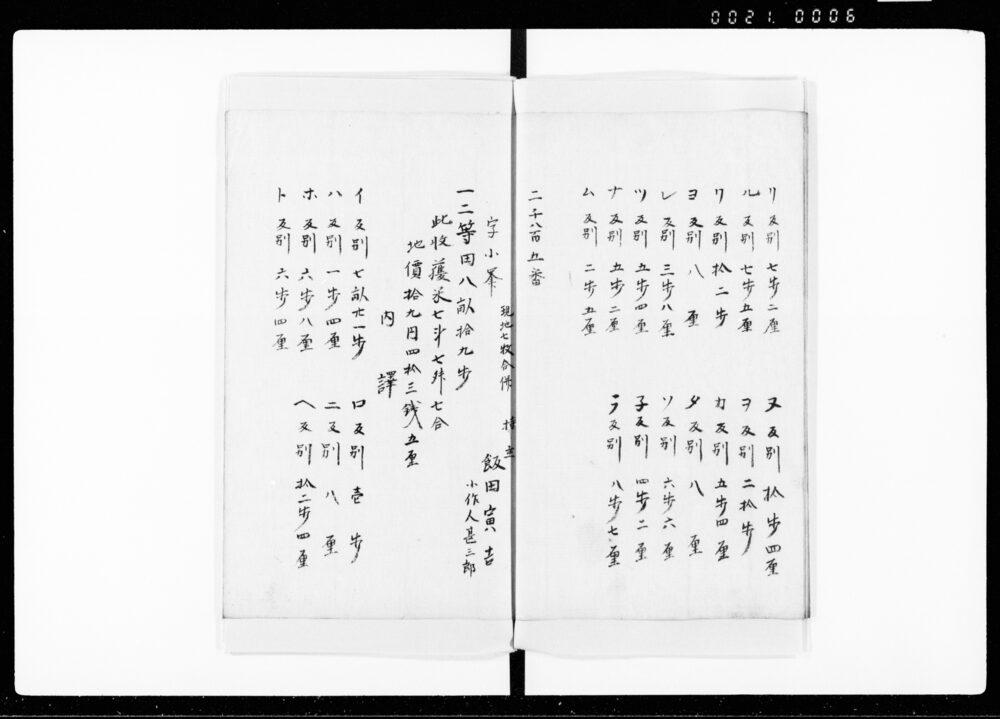 0021.0006
リ反別 七歩二厘
ヌ反別 拾歩四厘
ル反別 七歩五厘
ヲ反別 二拾歩
ワ反別 拾二歩
カ反別 五歩四厘
ヨ反別 八厘
タ反別 八厘
レ反別 三歩八厘
ソ反別 六歩六厘
ツ反別 五歩四厘
子反別 四歩二厘
ナ反別 五歩二厘
ラ反別 八歩七厘
ム反別 二歩五厘
二千八百五番
字小峯
現地七枚合併 持主
飯田寅吉
小作人甚三郎
一二等田八畝拾九歩
此收獲米七斗七舛七合
地價拾九円四拾三銭五厘
内譯
イ反別 七畝廿一歩
ロ反別 壱歩
ハ反別 一歩四厘
ニ反別 八厘
ホ反別 六歩八厘
ヘ反別 拾二歩四厘
ト反別 六歩四厘